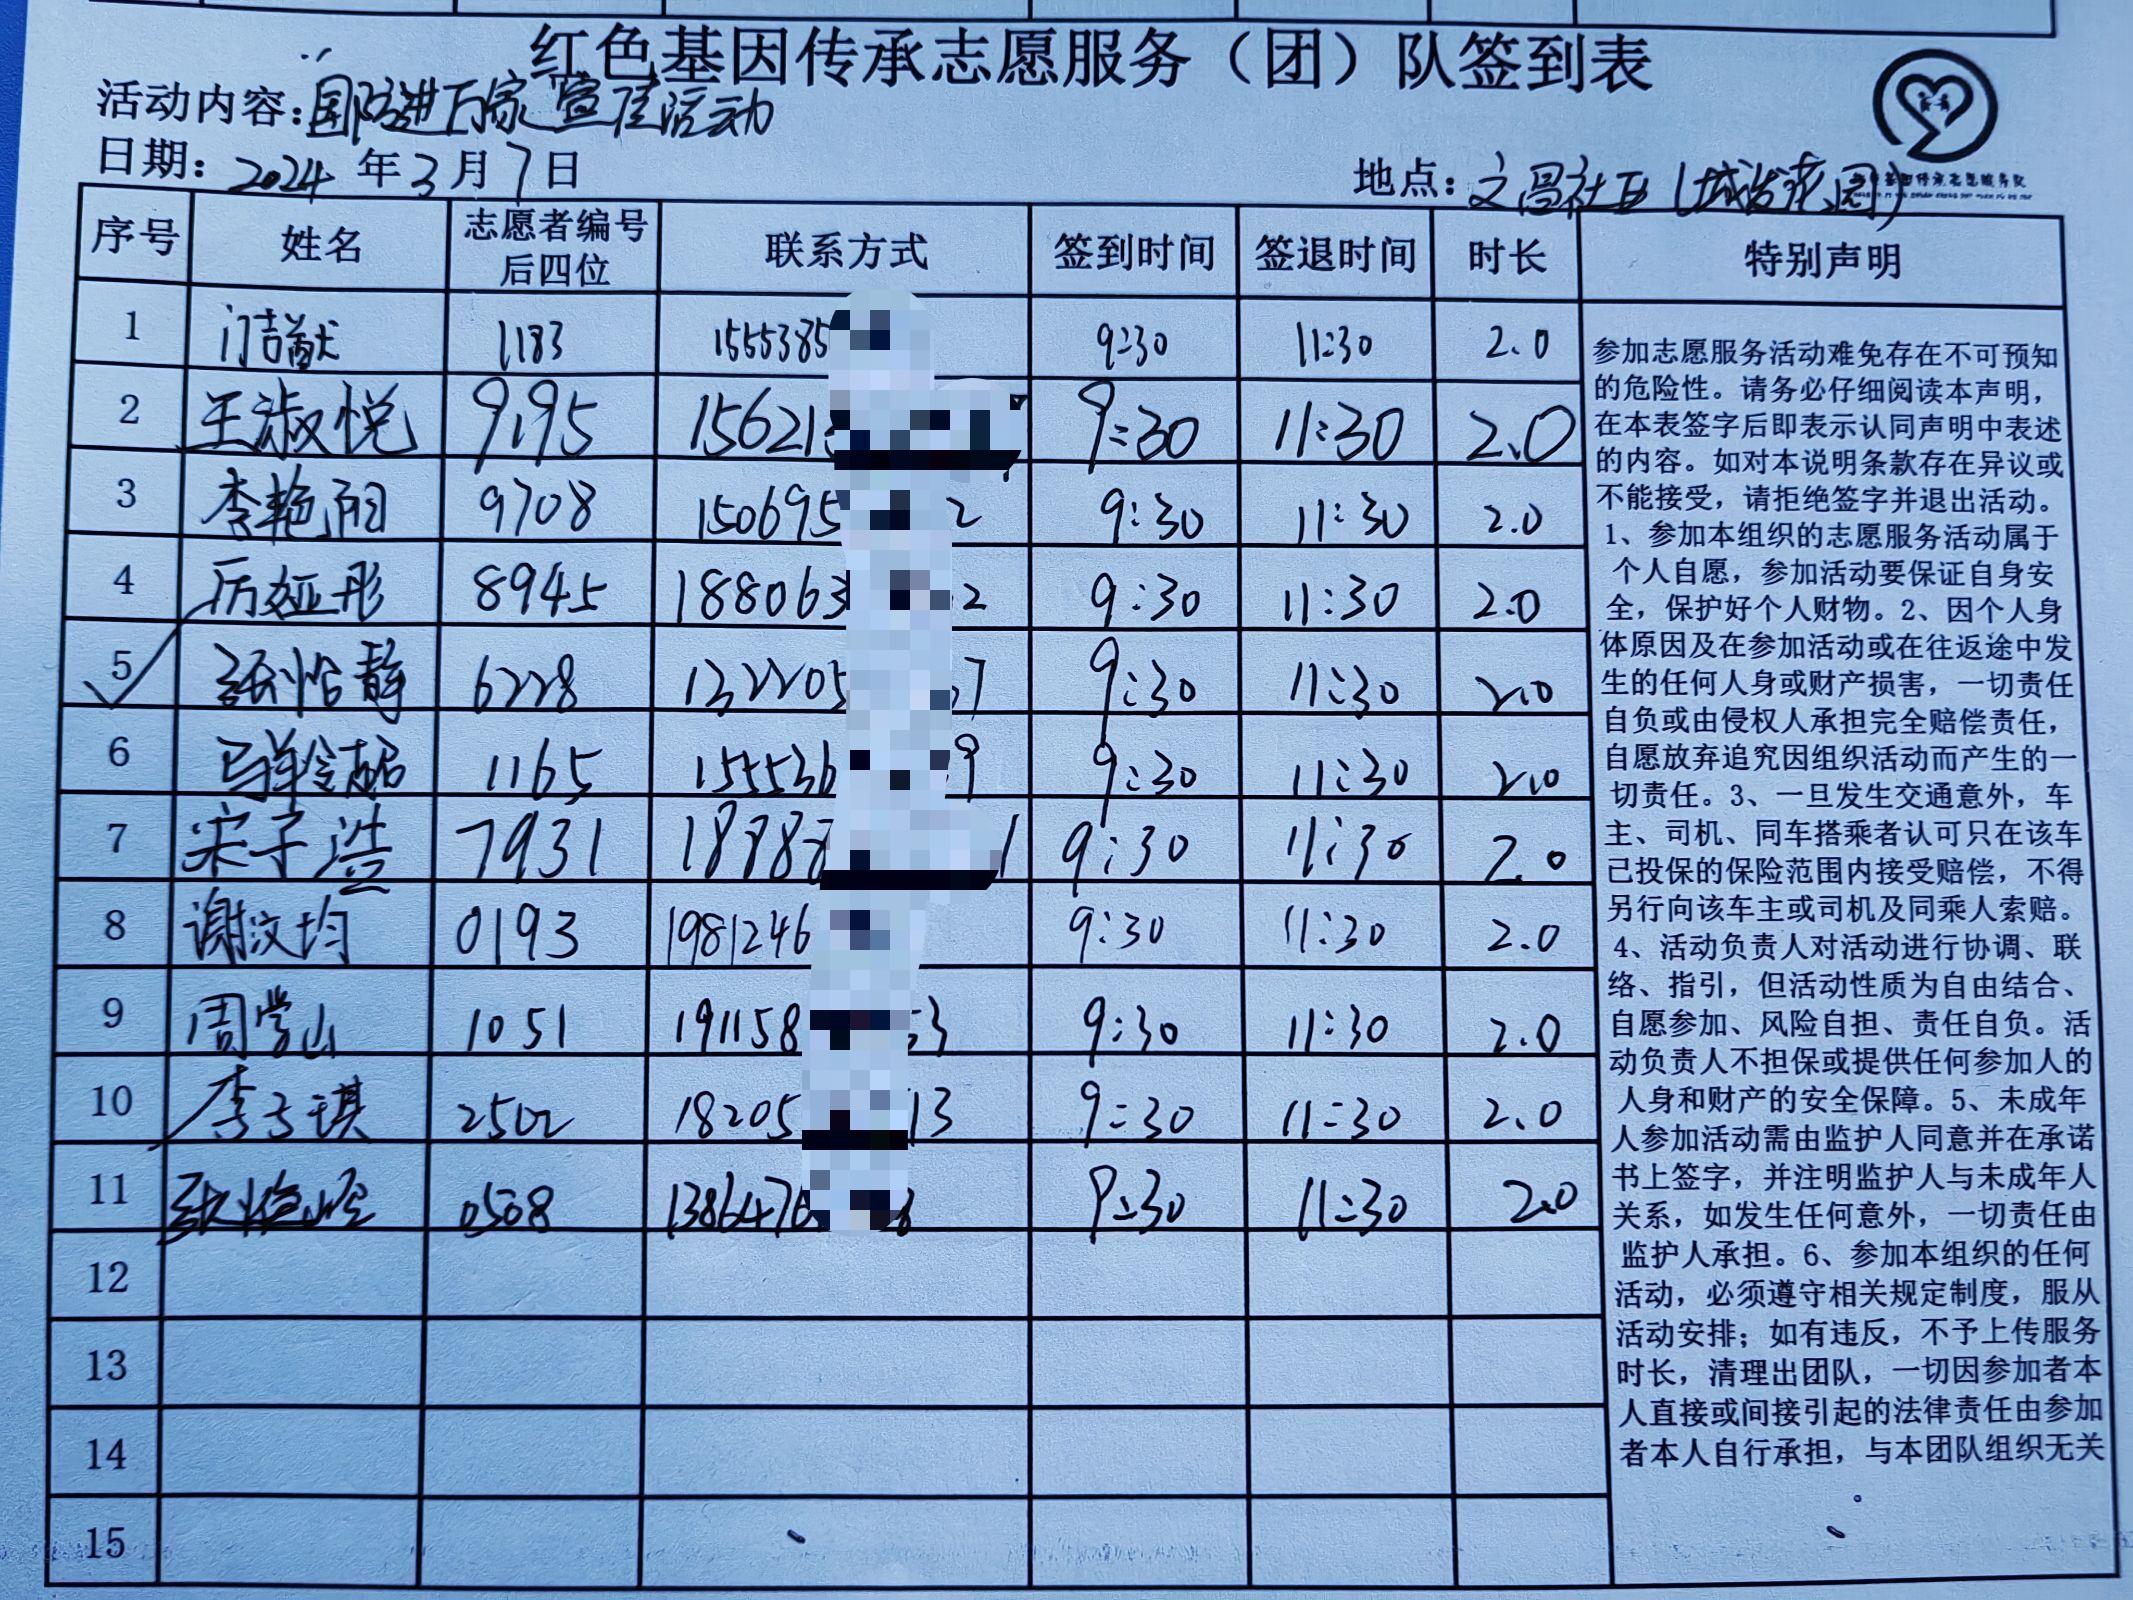 红色基因传承志愿服务（团）队签到表
活动内容：国防进万家宣传活动
日期：2024年3月7日 地点：文昌社区（城发花园）
序号 姓名 志愿者编号后四位 联系方式 签到时间 签退时间 时长 特别声明
1 1183 1555385 9:30 11:30 2.0
2 王淑悦 9195 15621 9:30 11:30 2.0
3 李艳阳 9708 150695 2 9:30 11:30 2.0
4 厉娅彤 8945 188063 2 9:30 11:30 2.0
5 张怡静 6228 132205 7 9:30 11:30 2.0
6 1165 155536 9 9:30 11:30 2.0
7 宋子浩 7931 1888 1 9:30 11:30 2.0
8 谢汶均 0193 1981246 9:30 11:30 2.0
9 周学山 1051 191158 3 9:30 11:30 2.0
10 李子琪 2502 18205 13 9:30 11:30 2.0
11 0508 1386476 8 9:30 11:30 2.0
12
13
14
15
参加志愿服务活动难免存在不可预知
的危险性。请务必仔细阅读本声明，
在本表签字后即表示认同声明中表述
的内容。如对本说明条款存在异议或
不能接受，请拒绝签字并退出活动。
1、参加本组织的志愿服务活动属于
个人自愿，参加活动要保证自身安
全，保护好个人财物。2、因个人身
体原因及在参加活动或在往返途中发
生的任何人身或财产损害，一切责任
自负或由侵权人承担完全赔偿责任，
自愿放弃追究因组织活动而产生的一
切责任。3、一旦发生交通意外，车
主、司机、同车搭乘者认可只在该车
已投保的保险范围内接受赔偿，不得
另行向该车主或司机及同乘人索赔。
4、活动负责人对活动进行协调、联
络、指引，但活动性质为自由结合、
自愿参加、风险自担、责任自负。活
动负责人不担保或提供任何参加人的
人身和财产的安全保障。5、未成年
人参加活动需由监护人同意并在承诺
书上签字，并注明监护人与未成年人
关系，如发生任何意外，一切责任由
监护人承担。6、参加本组织的任何
活动，必须遵守相关规定制度，服从
活动安排；如有违反，不予上传服务
时长，清理出团队，一切因参加者本
人直接或间接引起的法律责任由参加
者本人自行承担，与本团队组织无关
。